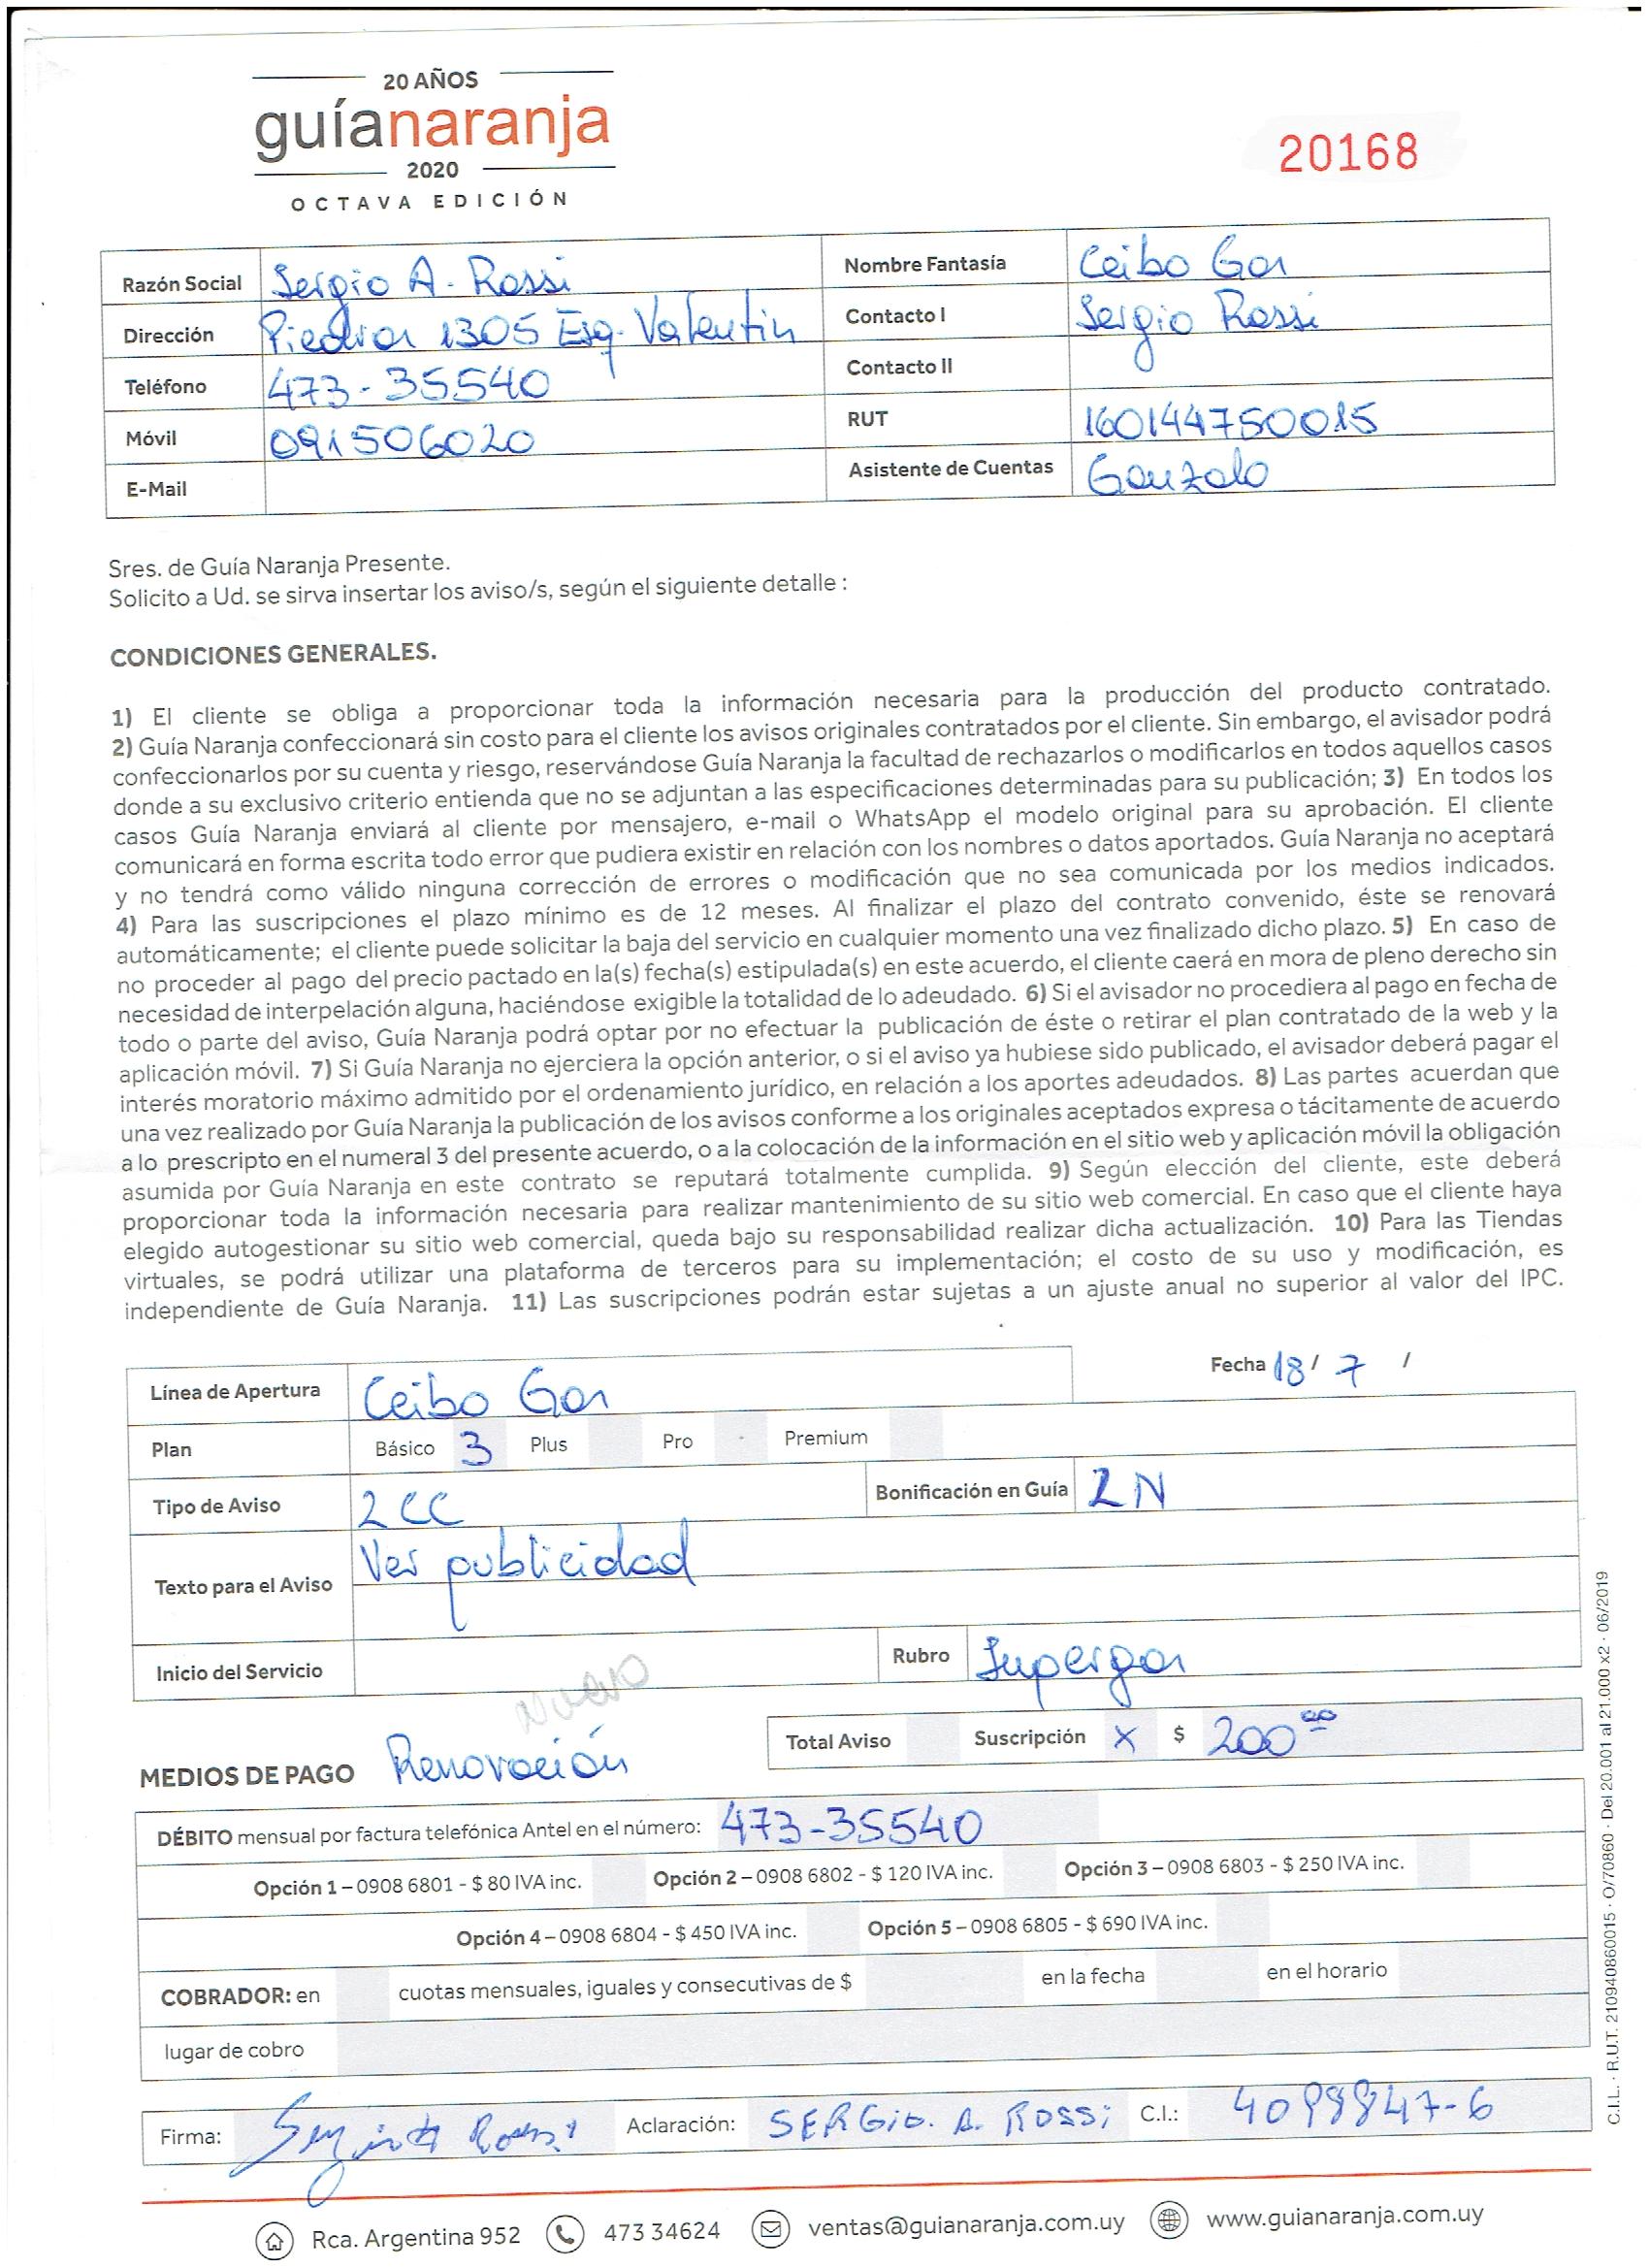 20 AÑOS
guíanaranja
2020
OCTAVA EDICIÓN
20168
Razón Social Sergio A. Rossi Nombre Fantasía Ceibo Gas
Dirección Piedras 1305 Esq. Valentin Contacto I Sergio Rossi
Teléfono 473-35540 Contacto II
Móvil 091506020 RUT 160144750015
E-Mail Asistente de Cuentas Gonzalo
Sres. de Guía Naranja Presente.
Solicito a Ud. se sirva insertar los aviso/s, según el siguiente detalle :
CONDICIONES GENERALES.
1) El cliente se obliga a proporcionar toda la información necesaria para la producción del producto contratado.
2) Guía Naranja confeccionará sin costo para el cliente los avisos originales contratados por el cliente. Sin embargo, el avisador podrá
confeccionarlos por su cuenta y riesgo, reservándose Guía Naranja la facultad de rechazarlos o modificarlos en todos aquellos casos
donde a su exclusivo criterio entienda que no se adjuntan a las especificaciones determinadas para su publicación; 3) En todos los
casos Guía Naranja enviará al cliente por mensajero, e-mail o WhatsApp el modelo original para su aprobación. El cliente
comunicará en forma escrita todo error que pudiera existir en relación con los nombres o datos aportados. Guía Naranja no aceptará
y no tendrá como válido ninguna corrección de errores o modificación que no sea comunicada por los medios indicados.
4) Para las suscripciones el plazo mínimo es de 12 meses. Al finalizar el plazo del contrato convenido, éste se renovará
automáticamente; el cliente puede solicitar la baja del servicio en cualquier momento una vez finalizado dicho plazo. 5) En caso de
no proceder al pago del precio pactado en la(s) fecha(s) estipulada(s) en este acuerdo, el cliente caerá en mora de pleno derecho sin
necesidad de interpelación alguna, haciéndose exigible la totalidad de lo adeudado. 6) Si el avisador no procediera al pago en fecha de
todo o parte del aviso, Guía Naranja podrá optar por no efectuar la publicación de éste o retirar el plan contratado de la web y la
aplicación móvil. 7) Si Guía Naranja no ejerciera la opción anterior, o si el aviso ya hubiese sido publicado, el avisador deberá pagar el
interés moratorio máximo admitido por el ordenamiento jurídico, en relación a los aportes adeudados. 8) Las partes acuerdan que
una vez realizado por Guía Naranja la publicación de los avisos conforme a los originales aceptados expresa o tácitamente de acuerdo
a lo prescripto en el numeral 3 del presente acuerdo, o a la colocación de la información en el sitio web y aplicación móvil la obligación
asumida por Guía Naranja en este contrato se reputará totalmente cumplida. 9) Según elección del cliente, este deberá
proporcionar toda la información necesaria para realizar mantenimiento de su sitio web comercial. En caso que el cliente haya
elegido autogestionar su sitio web comercial, queda bajo su responsabilidad realizar dicha actualización. 10) Para las Tiendas
virtuales, se podrá utilizar una plataforma de terceros para su implementación; el costo de su uso y modificación, es
independiente de Guía Naranja. 11) Las suscripciones podrán estar sujetas a un ajuste anual no superior al valor del IPC.
Línea de Apertura Ceibo Gas Fecha 18/ 7 /
Plan Básico 3 Plus Pro Premium
Tipo de Aviso 2CC Bonificación en Guía 2N
Texto para el Aviso Ver publicidad
Inicio del Servicio Rubro Supergas
nuevo
Total Aviso Suscripción X $ 200 00
MEDIOS DE PAGO Renovación
DÉBITO mensual por factura telefónica Antel en el número: 473-35540
Opción 1 – 0908 6801 - $ 80 IVA inc. Opción 2 – 0908 6802 - $ 120 IVA inc. Opción 3 – 0908 6803 - $ 250 IVA inc.
Opción 4 – 0908 6804 - $ 450 IVA inc. Opción 5 – 0908 6805 - $ 690 IVA inc.
COBRADOR: en cuotas mensuales, iguales y consecutivas de $ en la fecha en el horario
lugar de cobro
Firma: Sergio A Rossi Aclaración: SERGIO. A. ROSSi C.I.: 4099847-6
Rca. Argentina 952 473 34624 ventas@guianaranja.com.uy www.guianaranja.com.uy
C.I.L. - R.U.T. 210940860015 - O/70860 - Del 20.001 al 21.000 x2 - 06/2019